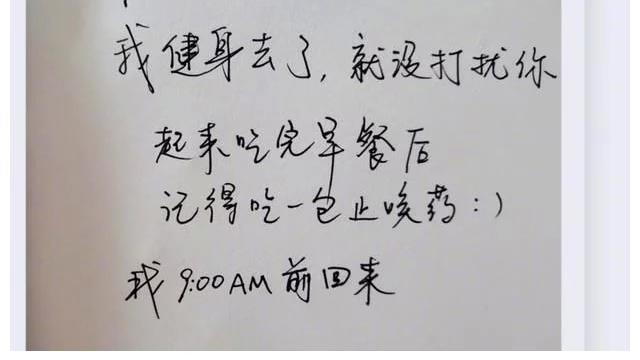 我健身去了，就没打扰你
起来吃完早餐后
记得吃一包止咳药：）
我 9:00AM 前回来